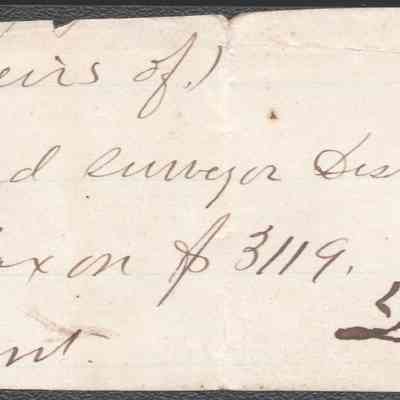 eirs of)
d surveyor Des
ax on $3119.
nt.